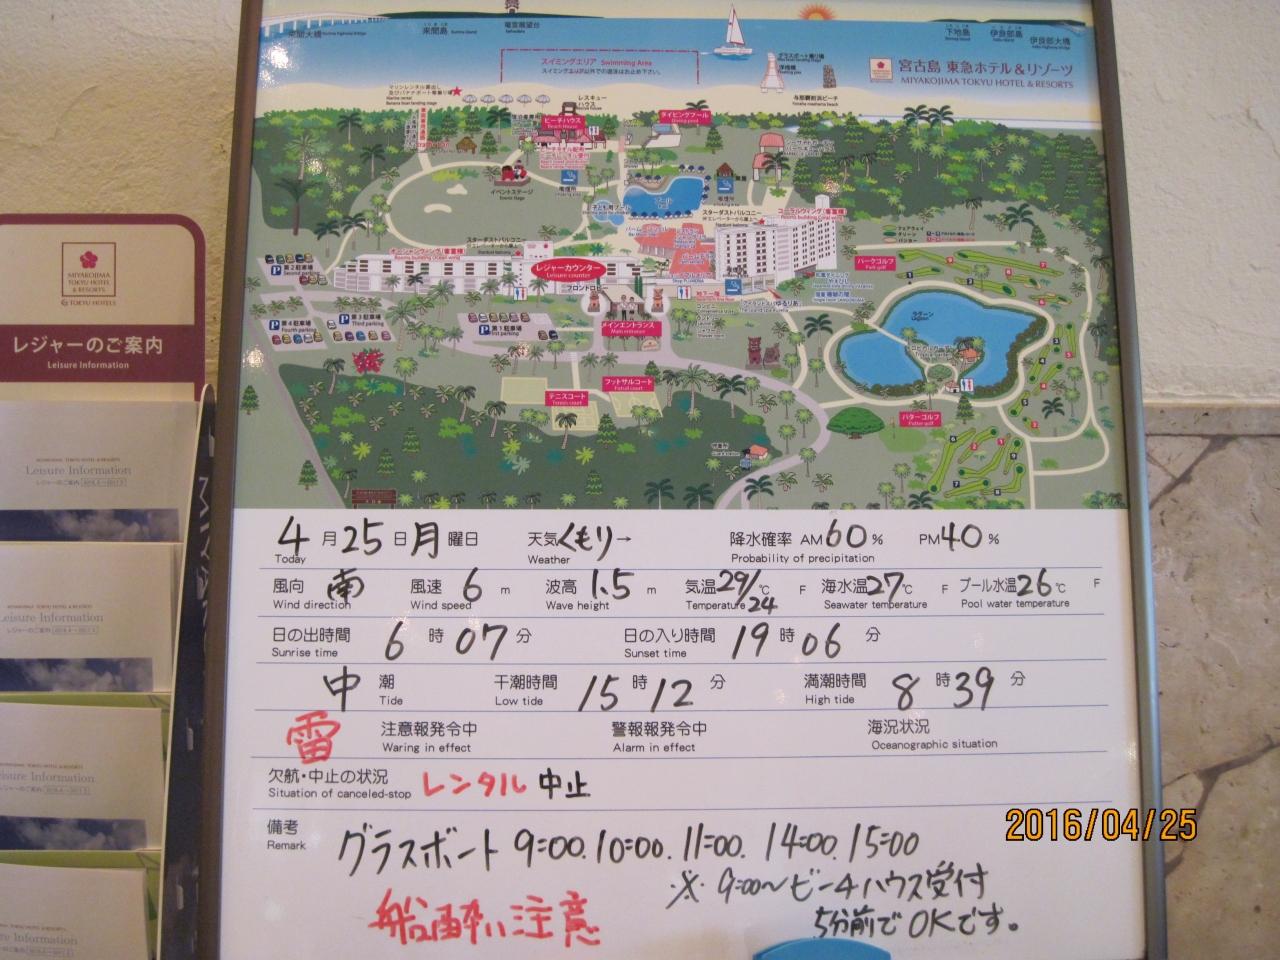 来間大橋 Kurima highway bridge
来間島 Kurima Island
竜宮展望台
下地島
伊良部島
伊良部大橋
スイミングエリア Swimming Area
スイミングエリア以外での遊泳はお止め下さい。
宮古島 東急ホテル&リゾーツ
MIYAKOJIMA TOKYU HOTEL & RESORTS
グラスボート乗り場
与那覇前浜ビーチ
Yonaha maehama beach
レスキューハウス
ビーチハウス
Beach House
ダイビングプール
Diving pool
イベントステージ
Event Stage
喫煙所
プール
スターダストバルコニー
オーシャンウィング(客室棟)
コーラルウィング(客室棟)
レジャーカウンター
Leisure counter
フロントロビー
メインエントランス
Main entrance
パークゴルフ
Park golf
ラグーン
Lagoon
P 第2駐車場
Second parking
P 第4駐車場
Fourth parking
P 第3駐車場
Third parking
P 第1駐車場
First parking
テニスコート
Tennis court
フットサルコート
Futsal court
パターゴルフ
Putter golf
守衛所
Guard station
MIYAKOJIMA
TOKYU HOTEL
& RESORTS
TOKYU HOTELS
レジャーのご案内
Leisure Information
Leisure Information
レジャーのご案内
Leisure Information
レジャーのご案内
Leisure Information
Leisure Information
4月25日月曜日 天気くもり→ 降水確率 AM60% PM40%
Today Weather Probability of precipitation
風向 南 風速 6 m 波高 1.5 m 気温29/24℃ F 海水温27℃ F プール水温26℃ F
Wind direction Wind speed Wave height Temperature Seawater temperature Pool water temperature
日の出時間 6時07分 日の入り時間 19時06分
Sunrise time Sunset time
中潮 干潮時間 15時12分 満潮時間 8時39分
Tide Low tide High tide
雷 注意報発令中 警報報発令中 海況状況
Waring in effect Alarm in effect Oceanographic situation
欠航・中止の状況 レンタル中止
Situation of canceled-stop
備考
Remark
グラスボート 9:00. 10:00. 11:00. 14:00. 15:00
※ 9:00〜ビーチハウス受付
5分前でOKです。
船酔い注意
2016/04/25